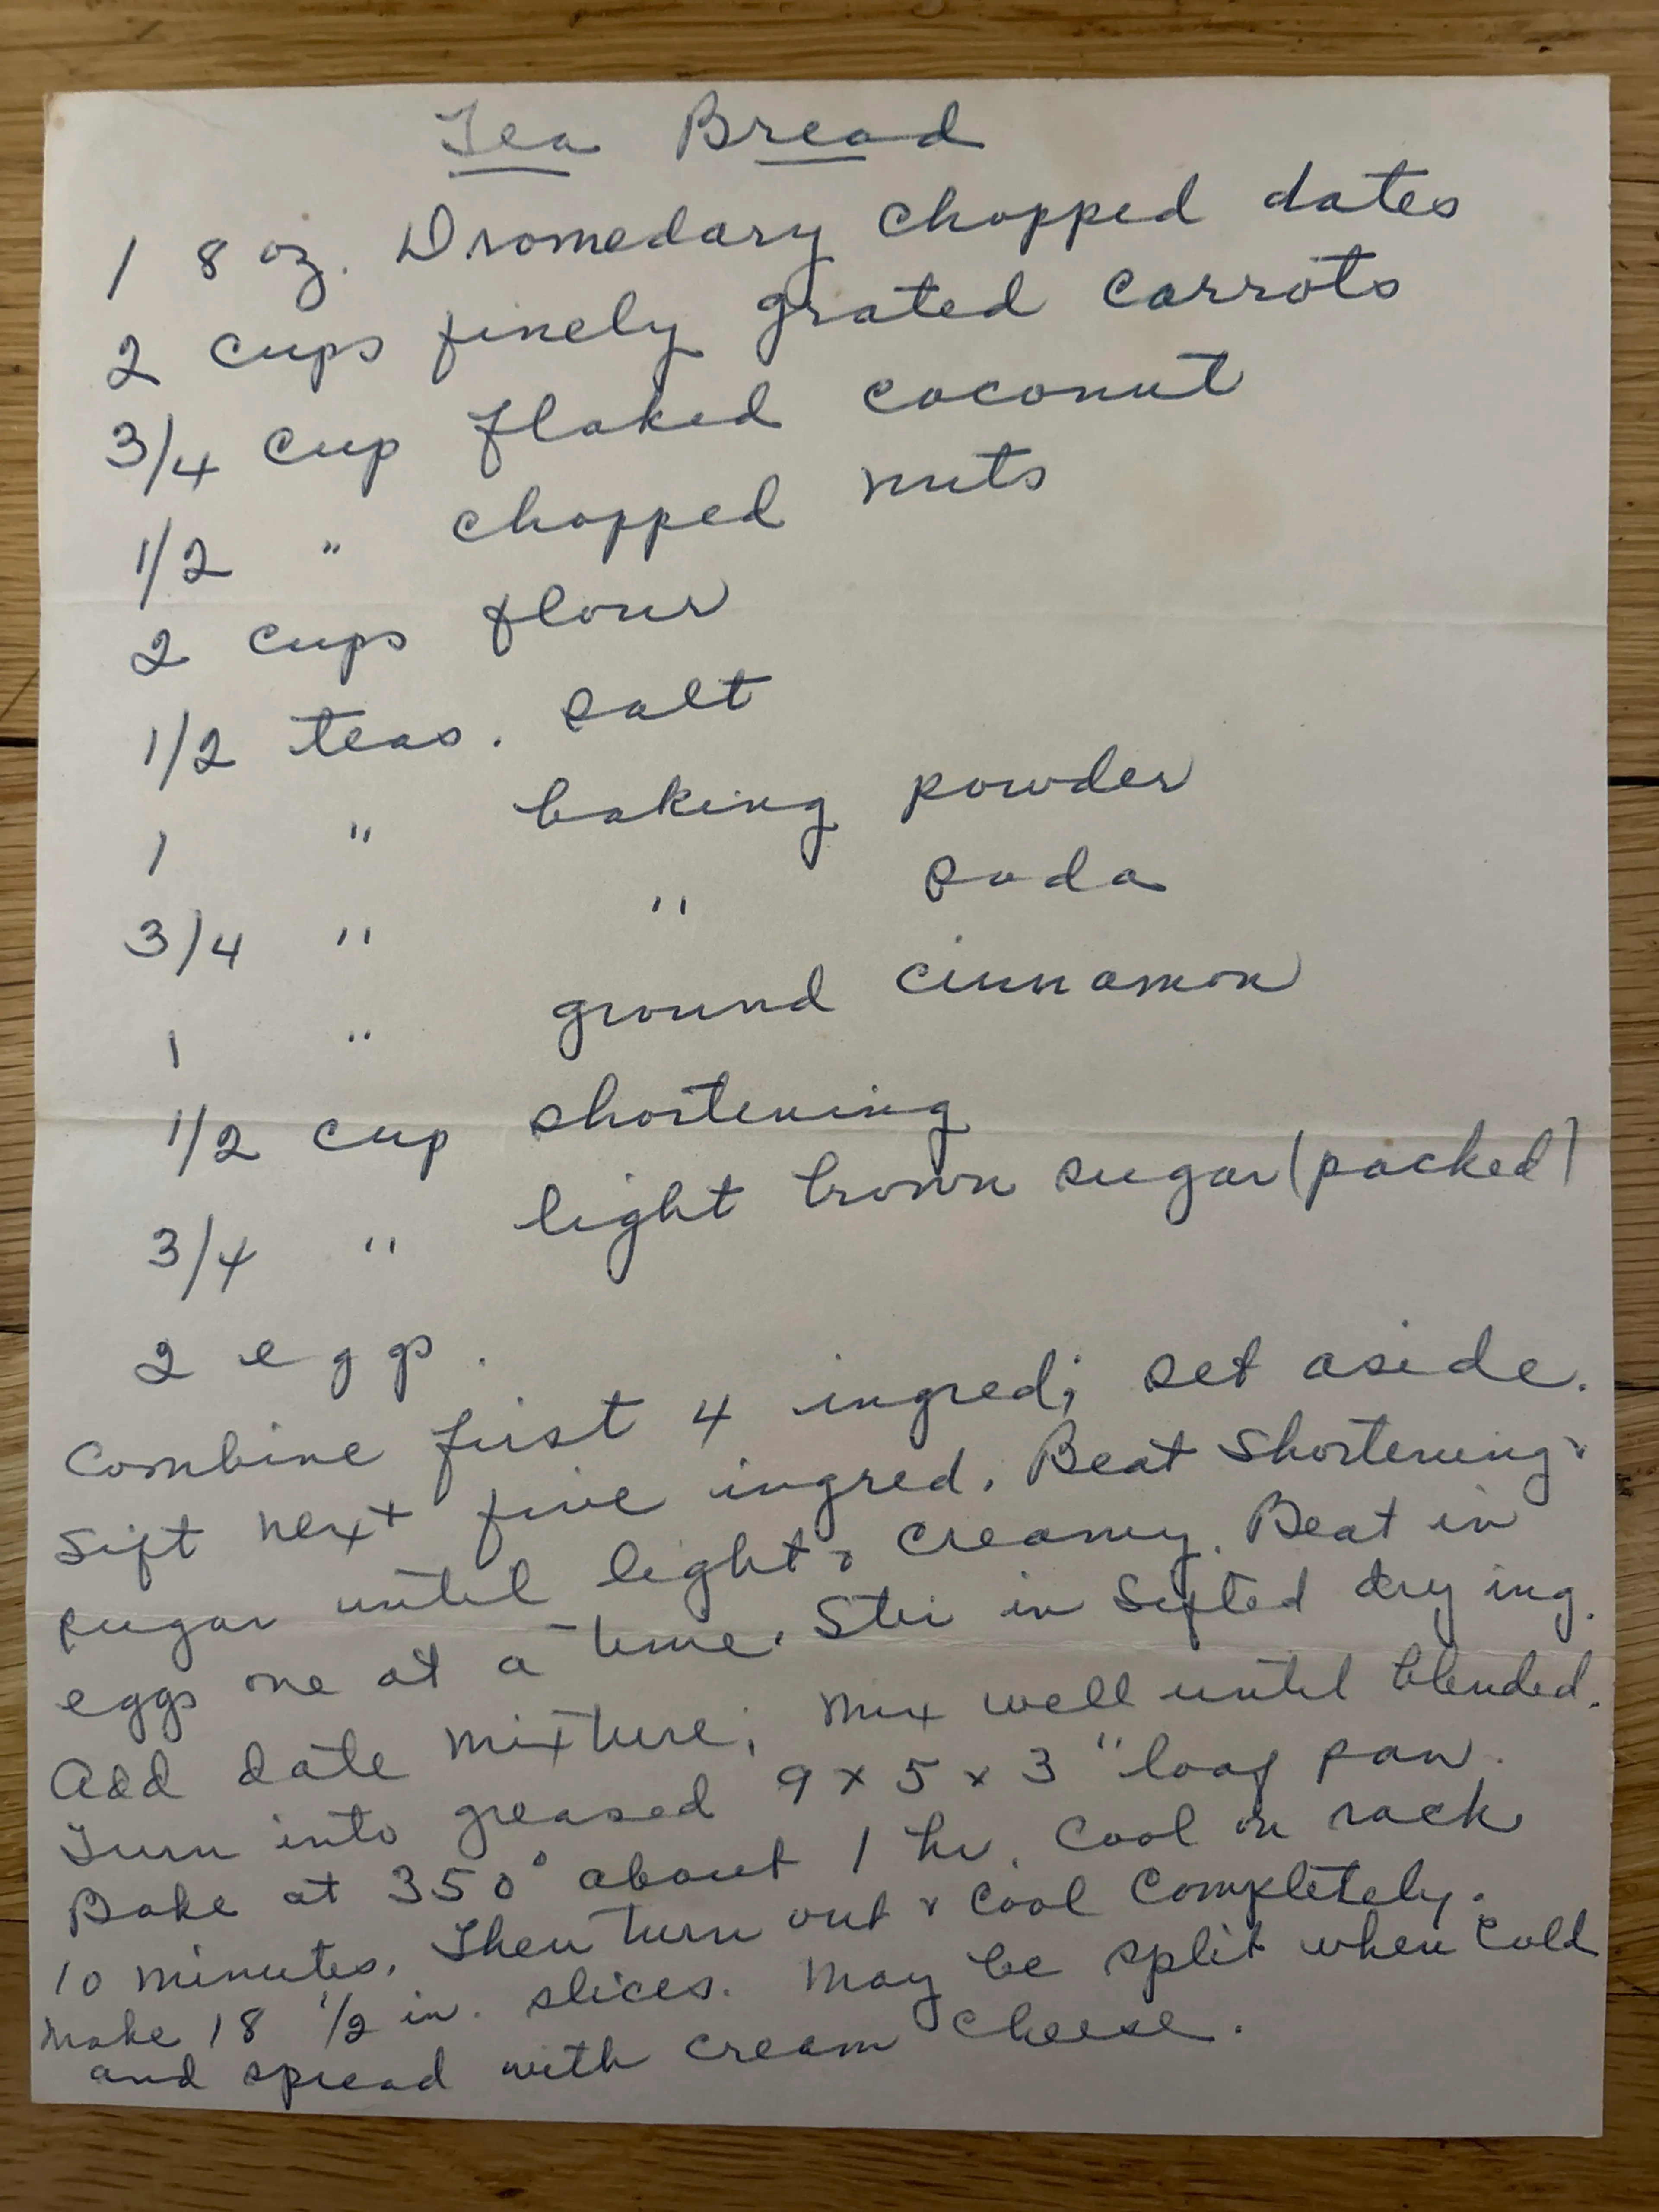 Tea Bread
1 8 oz. Dromedary chopped dates
2 cups finely grated carrots
3/4 cup flaked coconut
1/2 " chopped nuts
2 cups flour
1/2 teas. salt
1 " baking powder
3/4 " " soda
1 " ground cinnamon
1/2 cup shortening
3/4 " light brown sugar (packed)
2 eggs.
Combine first 4 ingred; set aside.
Sift next five ingred. Beat shortening &
sugar until light & creamy. Beat in
eggs one at a time. Stir in sifted dry ing.
Add date mixture; mix well until blended.
Turn into greased 9 x 5 x 3 " loaf pan.
Bake at 350° about 1 hr. Cool on rack
10 minutes. Then turn out & cool completely.
Make 18 1/2 in. slices. May be split when cold
and spread with cream cheese.